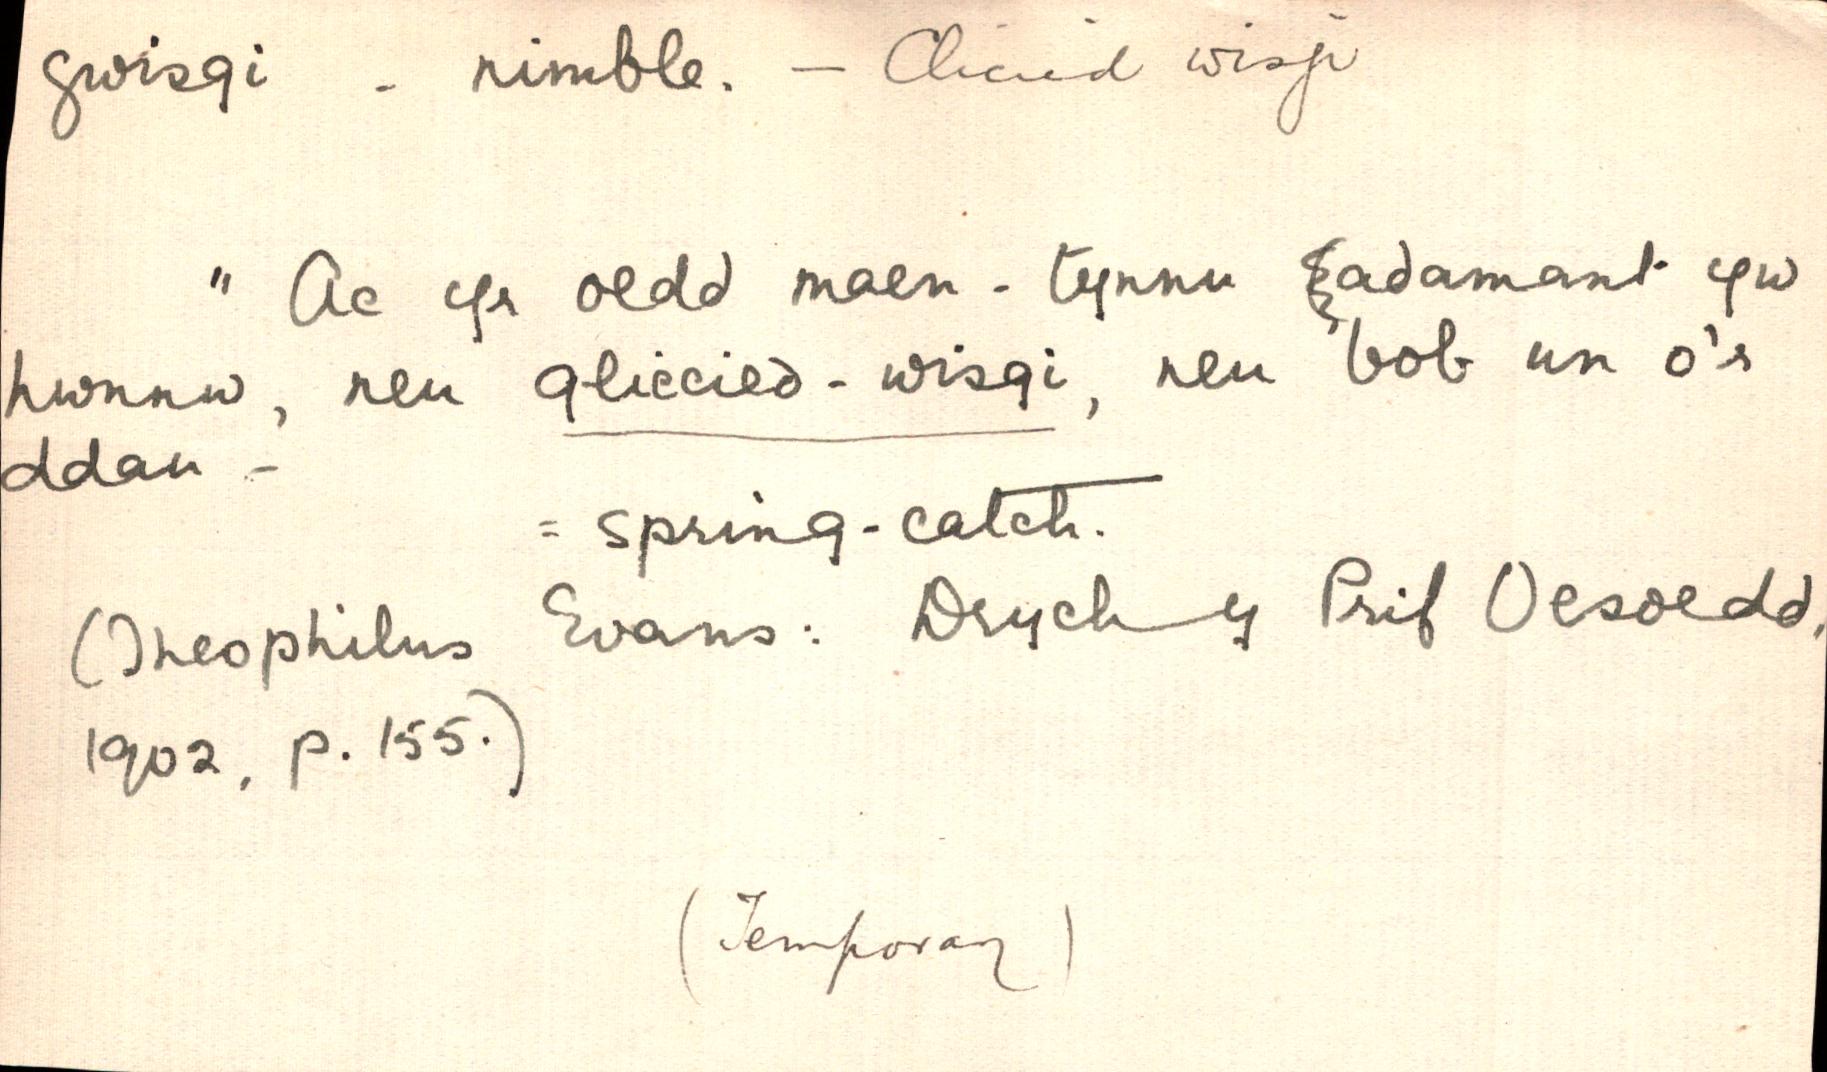 gwisgi - nimble. - Clicied wisgi
" Ac yr oedd maen - tynnu {adamant yw
hwnnw, neu gliccied - wisgi, neu bob un o'r
ddau -
= spring-catch.
(Theophilus Evans: Drych y Prif Oesoedd,
1902, p. 155.)
(Temporary)